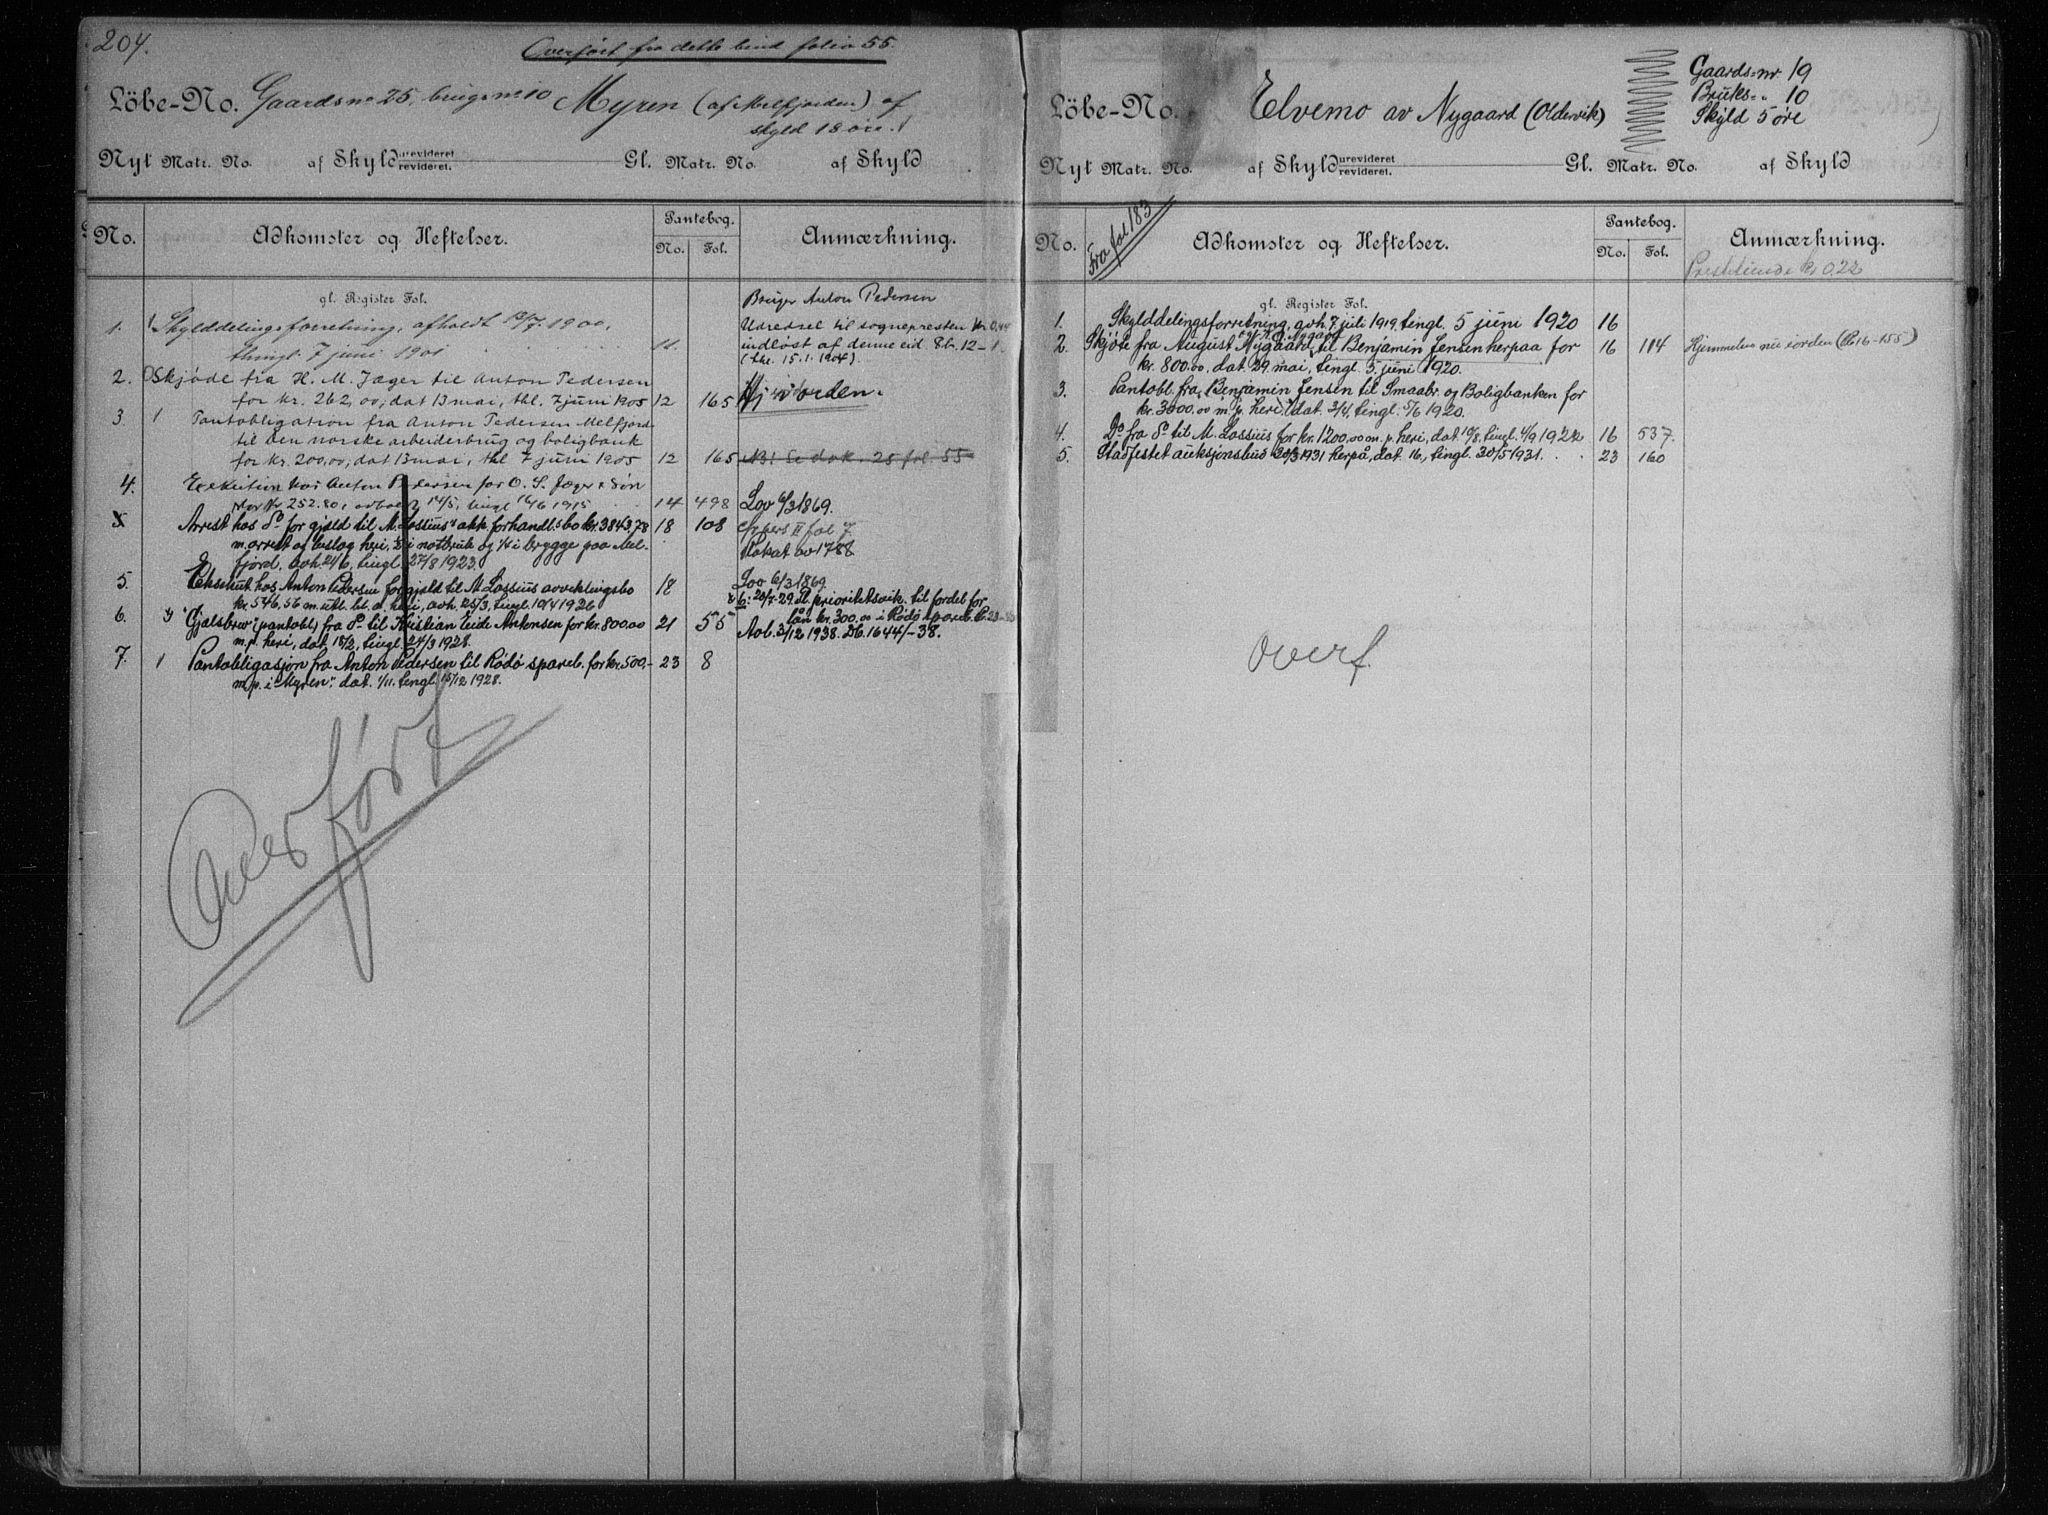 204.
Overført fra dette bind folio 55.
Löbe-No. Gaardsno 25, brugsno 10 Myren (af Melfjorden) af
skyld 18 øre.
Nyt Matr. No. af Skyld urevideret revideret. Gl. Matr. No. af Skyld
No. Adkomster og Heftelser. Pantebog. No. Fol. Anmærkning.
gl. Register Fol.
Bruger Anton Pedersen
1. Skylddelingsforretning, afholdt 13/7 1900,
thingl. 7 juni 1901 11
Udredsel til sognepresten kr 0,44
indløst af denne eid
(thl. 15.1.1904).
2. Skjøde fra H. M. Jæger til Anton Pedersen
for kr. 262,00, dat 13 mai, thl. 7 juni 1905 12 165 Hj. i orden.
3. Pantobligation fra Anton Pedersen Melfjord
til den norske arbeiderbrug og boligbank
for kr. 200,00, dat 13 mai, thl 7 juni 1905 12 165 NB! Se dok. 25 fol. 55
4. Exekution hos Anton Pedersen for O. S. Jæger & Søn
for kr. 252.80, 14/5, tingl 16/6 1915 14 498 Lov 6/3 1869.
5 Arrest hos do for gjæld til M. Lossius' akk. forhandl.sbo kr. 3843,78 18 108
m. arrest og beslag heri, i notbruk og 1/4 i brygge paa Mel-
fjord, avh. 21/6, tingl. 27/8 1923.
Plakat av 1788
5. Eksekut. hos Anton Pedersen for gjeld til M. Lossius avviklingsbo 18 Lov 6/3 1869.
kr. 546,56 m. utl. bl. a. heri, avh. 25/3, tingl. 10/4 1926
6. Gjælsbrev (pantobl.) fra do til Kristian Eide Antonsen for kr. 800.00 21 55
m. p. heri, dat. 18/2, tingl. 24/3 1928.
prioritetsvik. til fordel for
lån kr. 300.00 i Rødø spareb.
Avl. 3/12 1938. Db. 1644/-38.
7. 1 Pantobligasjon fra Anton Pedersen til Rødø spareb. for kr. 500,- 23 8
m. p. i "Myren": dat. 1/11. tingl. 15/12 1928.
Overført
Löbe-No. Elvemo av Nygaard (Oldervik)
Gaards-nr. 19
Bruks- " 10
Skyld 5 øre
Nyt Matr. No. af Skyld urevideret revideret. Gl. Matr. No. af Skyld
Fra fol 183
No. Adkomster og Heftelser. Pantebog. No. Fol. Anmærkning.
Prestetiende kr 0,22
gl. Register Fol.
1. Skylddelingsforretning, avh. 7 juli 1919, tingl. 5 juni 1920 16
2. Skjøte fra August Nygaard til Benjamin Jensen herpaa for 16 114 Hjemmelen nu iorden (Pb 16-155)
kr. 800.00. dat. 29 mai, tingl. 5 juni 1920.
3. Pantobl. fra Benjamin Jensen til Smaabr. og Boligbanken for
kr. 3000.00 m. p. heri, dat. 3/4, tingl. 5/6 1920.
4. Do fra do til M. Lossius for kr. 1200,00 m. p. heri, dat. 10/8, tingl. 4/9 1922 16 537.
5. Stadfestet auksjonsbud 20/3 1931 herpå, dat. 16., tingl. 30/5 1931. 23 160
Overf.